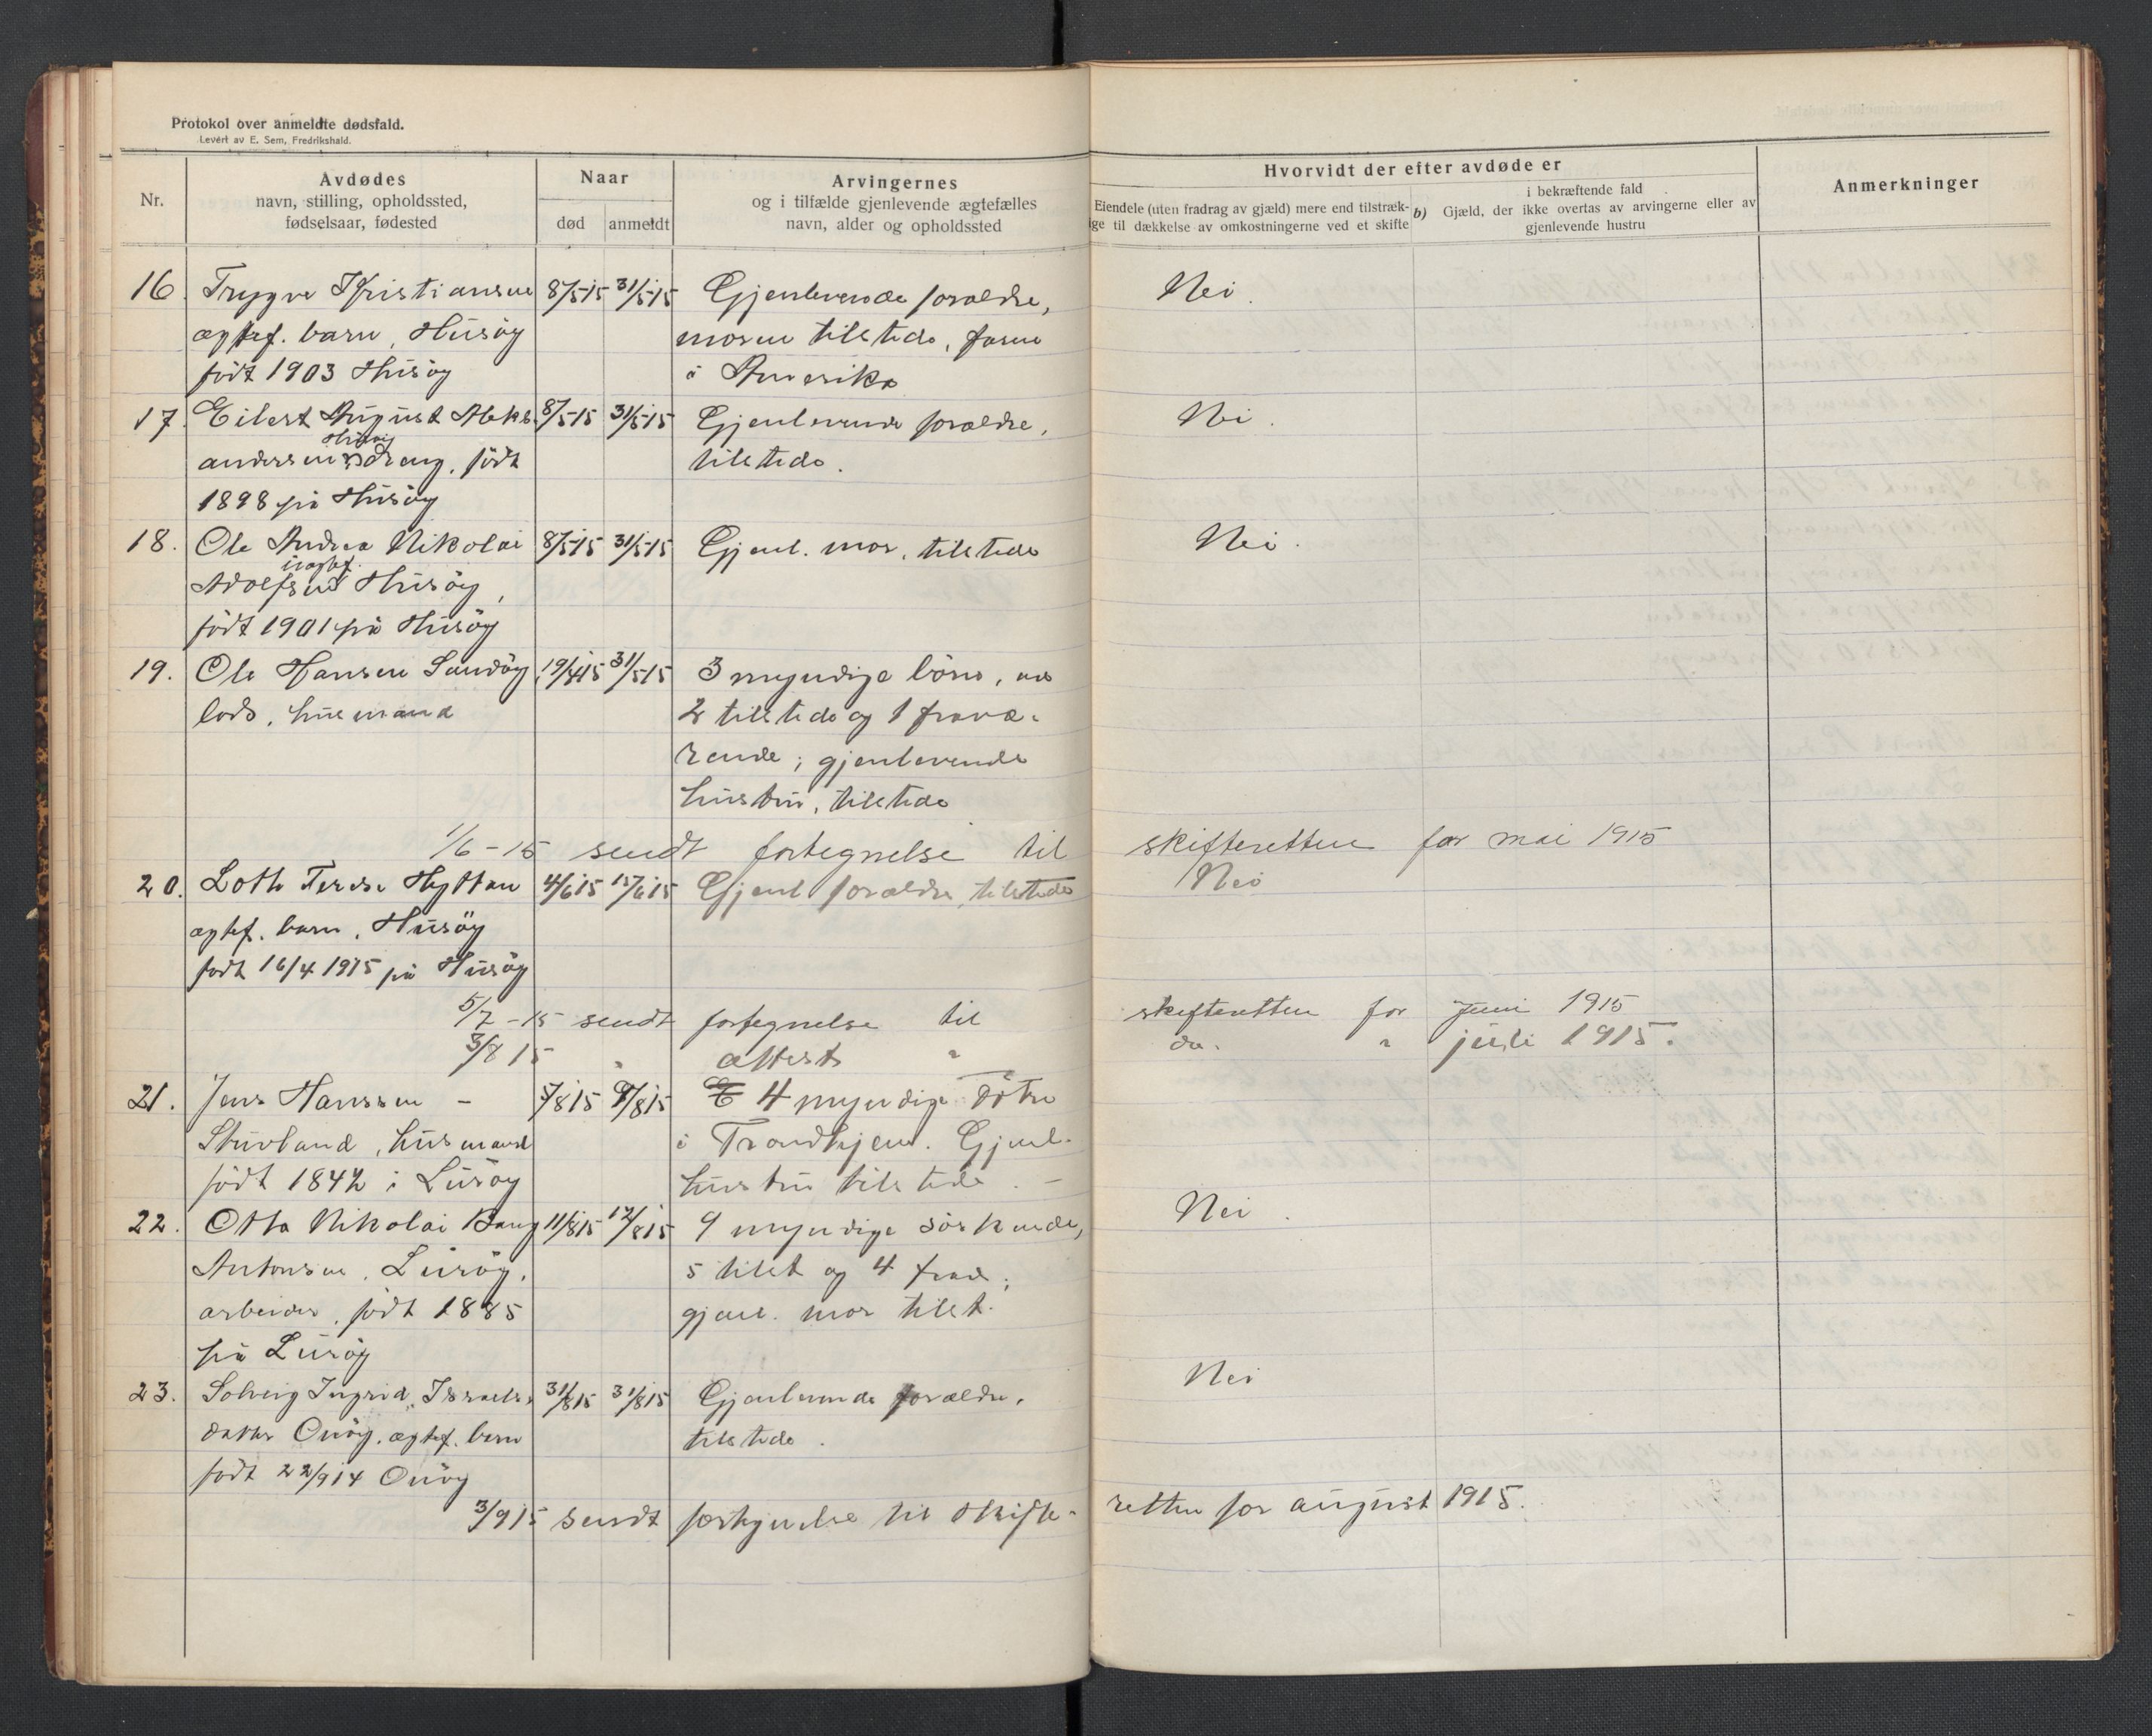 Protokol over anmeldte dødsfald.
Levert av E. Sem, Fredrikshald.
Nr.
Avdødes
navn, stilling, opholdssted,
fødselsaar, fødested
Naar
død
anmeldt
Arvingernes
og i tilfælde gjenlevende ægtefælles
navn, alder og opholdssted
Hvorvidt der efter avdøde er
Eiendele (uten fradrag av gjæld) mere end tilstræk-
ige til dækkelse av omkostningerne ved et skifte
b) i bekræftende fald
Gjæld, der ikke overtas av arvingerne eller av
gjenlevende hustru
Anmerkninger
16. Trygve Kristiansen 8/5 15 31/5 15 Gjenlevende forældre, Nei.
ægtef. barn, Husøy moren tilstede, faren
født 1903 Husøy i Amerika
17. Eilert August Aleks- 8/5 15 31/5 15 Gjenlevende forældre, Nei.
Husøy
andersen dreng, født tilstede.
1898 på Husøy
18. Ole Andrea Nikolai 8/5 15 31/5 15 Gjenl. mor, tilstede Nei.
uægtef.
Adolfsen Husøy,
født 1901 på Husøy
19. Ole Hansen Sandøy 19/4 15 31/5 15 3 myndige börn, av
lods, husmand 2 tilstede og 1 fravæ-
rende; gjenlevende
hustru, tilstede
1/6-15 sendt fortegnelse til skifteretten for mai 1915
20. Loth Hyttan 4/6 15 15/6 15 Gjenl forældre, tilstede Nei
ægtef. barn, Husöy
født 16/4 1915 på Husøy
5/7-15 sendt fortegnelse til skifteretten for Juni 1915
3/8 15 " attest " do. " juli 1915.
21. Jens Hanssen - 7/8 15 9/8 15 4 myndige døtre
Stuvland, husmand i Trondhjem. Gjenl.
født 1842 i Lurøy hustru tilstede. -
22. Otto Nikolai Bang 11/8 15 12/8 15 9 myndige søskende, Nei.
Antonsen, Lurøy, 5 tilst og 4 frav.;
arbeider, født 1885 gjenl. mor tilst.
på Lurøy
23. Solveig Ingrid Israels- 31/8 15 31/8 15 Gjenlevende forældre, Nei
datter Onøy, ægtef. barn tilstede.
født 22/9 14 Onøy
3/9 15 sendt fortegnelse til skifte- retten for august 1915.